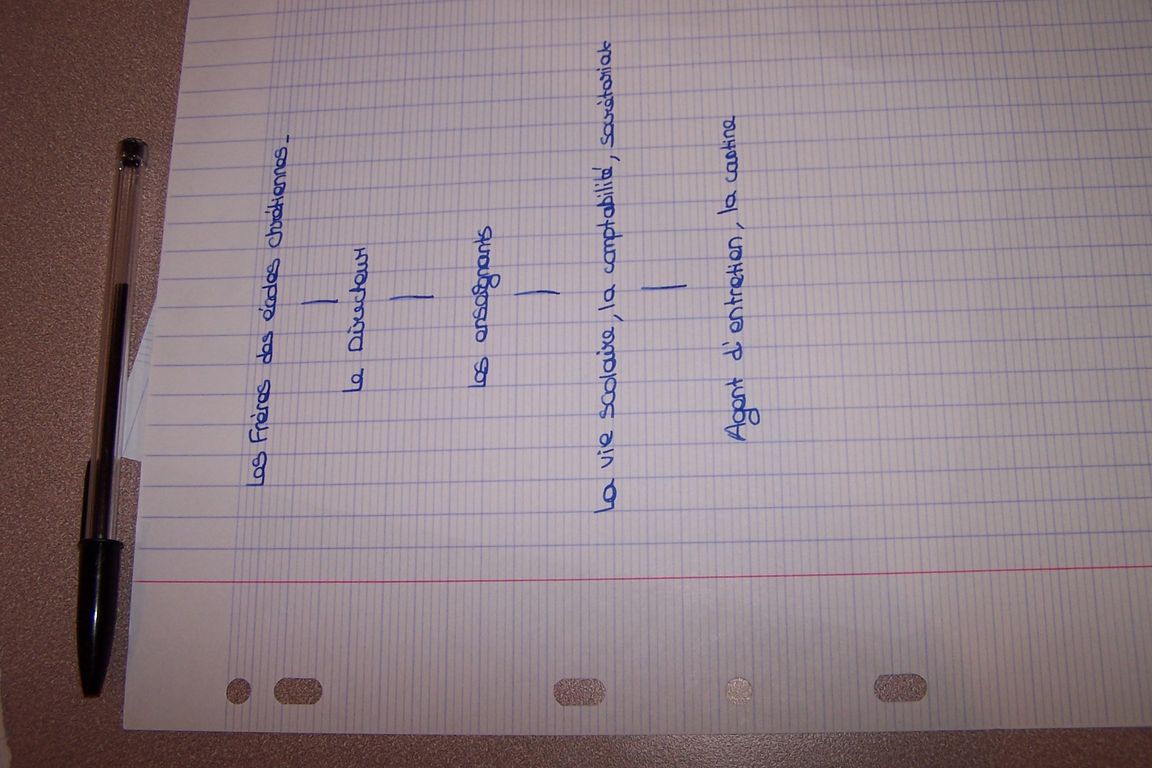 Les Frères des écoles chrétiennes_
Le Directeur
Les enseignants
La vie scolaire, la comptabilité, secrétariat
Agent d'entretien, la cantine